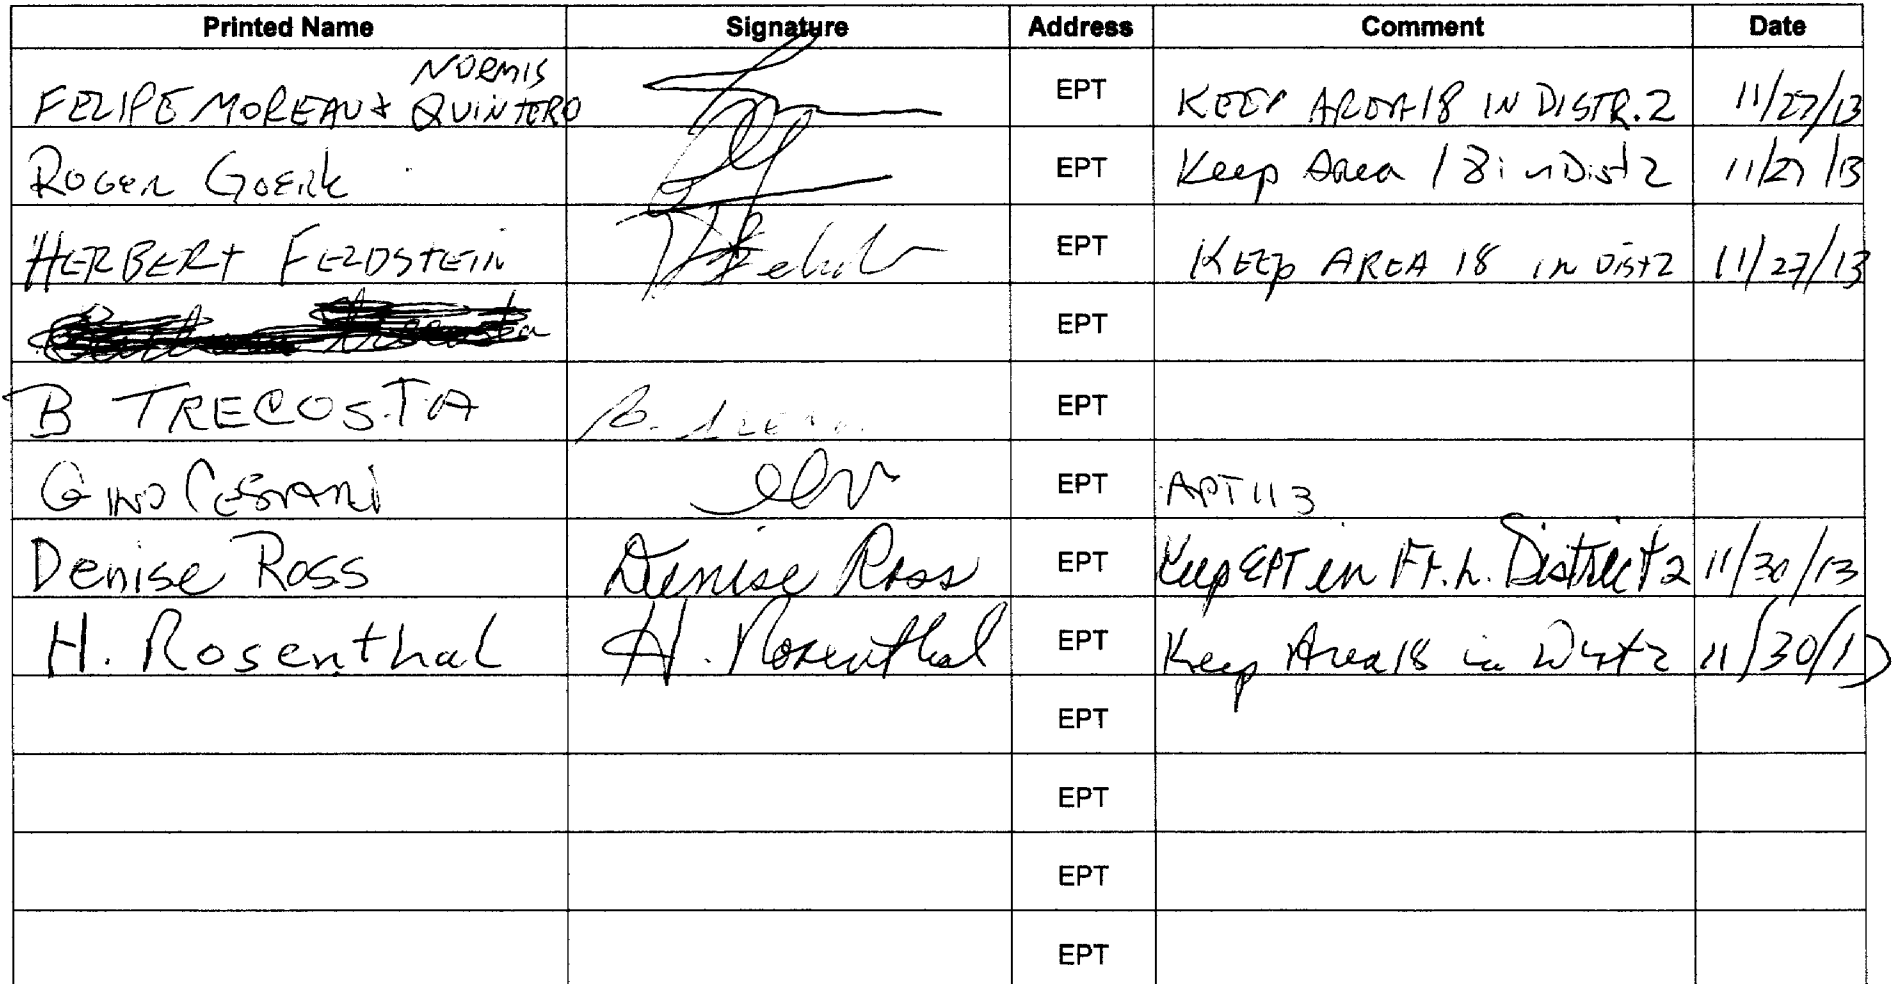 Printed Name Signature Address Comment Date
NORMIS
FELIPE MOREAU & QUINTERO EPT KEEP AREA 18 IN DISTR. 2 11/27/13
ROGER GOERK EPT Keep Area 18 in Dist 2 11/27/13
HERBERT FELDSTEIN EPT KEEP AREA 18 in Dist 2 11/27/13
EPT
B TRECOSTA EPT
GINO CESTARI EPT APT 113
Denise Ross Denise Ross EPT Keep EPT in Ft. L. District 2 11/30/13
H. Rosenthal H. Rosenthal EPT Keep Area 18 in Dist 2 11/30/13
EPT
EPT
EPT
EPT